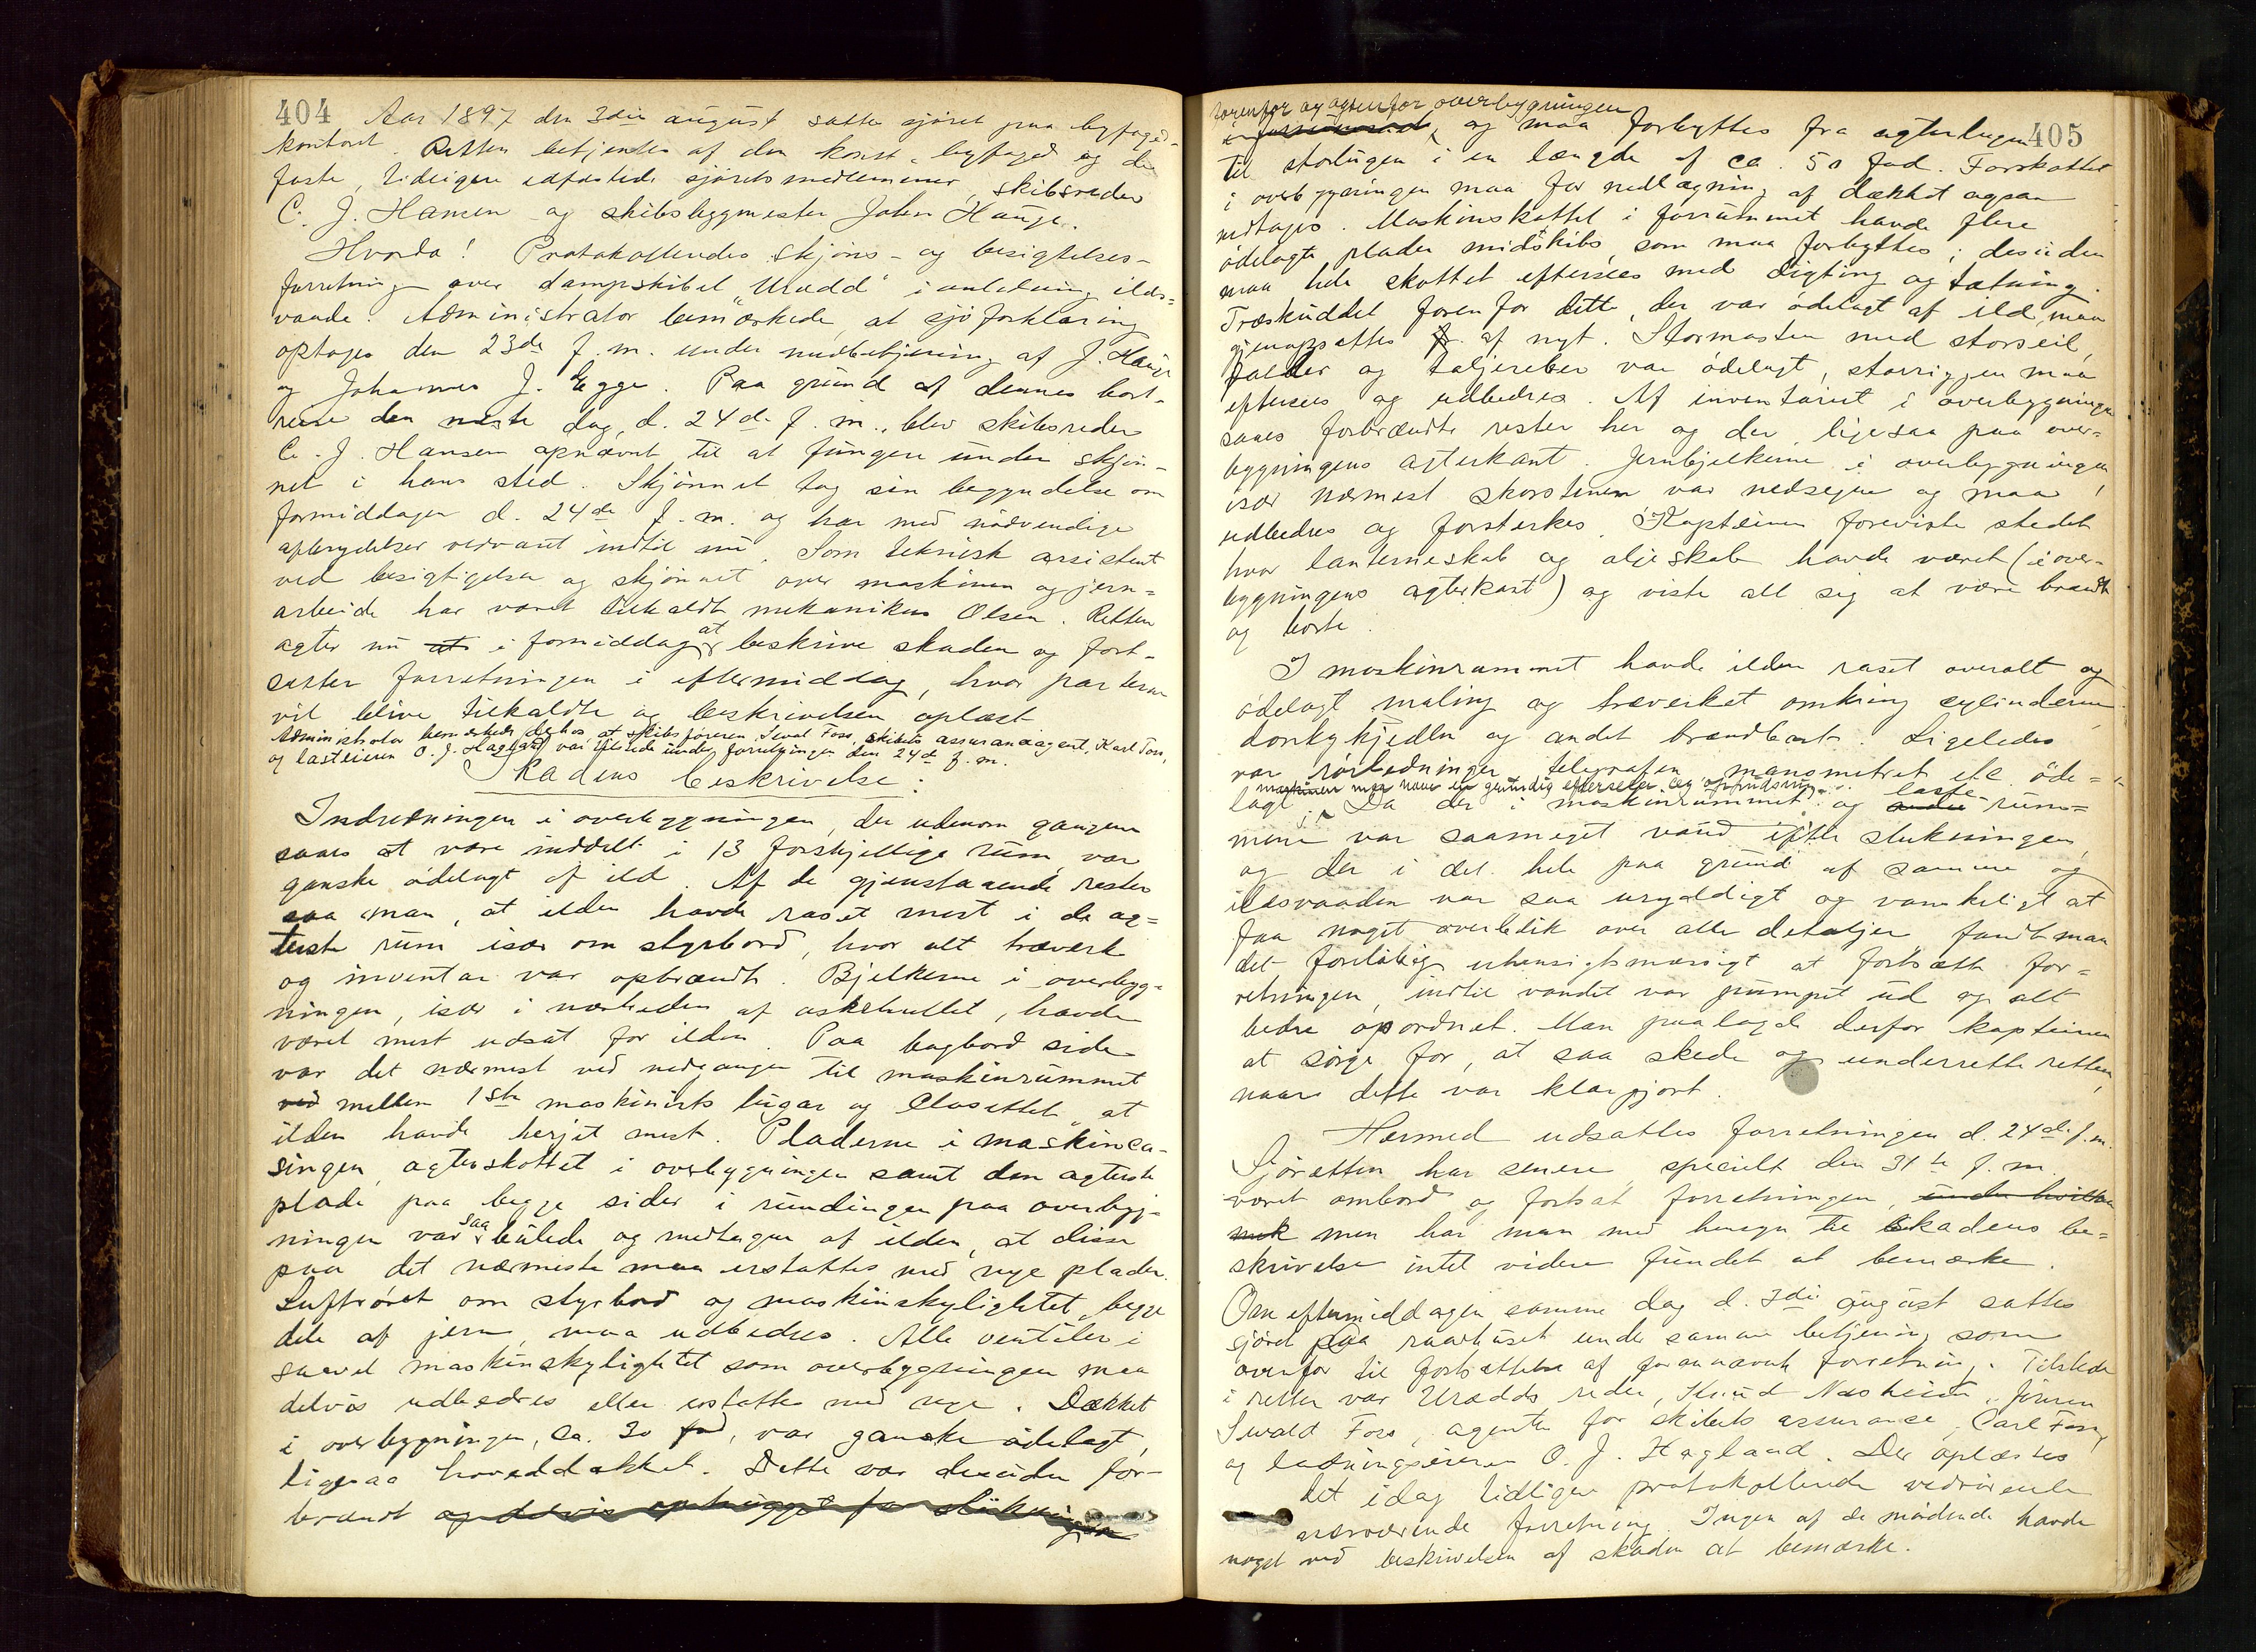 404
Aar 1897 den 3die august sattes sjøret paa byfoged-
kontoret. Retten betjentes af den konst. byfoged og de
faste, tidligere edfæstede sjøretsmedlemmer, skibsreder
C. J. Hansen og skibsbyggmester John Hauge.
Hvorda! Protokolleredes skjøns- og besigtelses-
forretning over dampskibet "Urædd" i anledning ilds-
vaade. Administrator bemærkede, at sjøforklaring
optoges den 23de f. m. under medbetjening af J. Hauge
og Johannes J. Egge. Paa grund af dennes bort-
reise den næste dag, d. 24de f. m., blev skibsreder
C. J. Hansen opnævnt til at fungere under skjøn-
net i hans sted. Skjønnet tog sin begyndelse om
formiddagen d. 24de f. m. og har med nødvendige
afbrydelser vedvart indtil nu. Som teknisk assistent
ved besigtigelsen og skjønnet over maskinen og jern-
arbeide har været tilkaldt mekanikus Olsen. Retten
agter nu at i formiddag at beskrive skaden og fort-
sætter forretningen i eftermiddag, hvor parterne
vil blive tilkaldte og beskrivelsen oplæst
Administrator bemærkede derhos, at skibsføreren, Sivald Foss, skibets assuranceagent, Karl Foss,
og lasteieren O. J. Hagland var tilstede under forretningen den 24de f. m.
Skadens beskrivelse:
Indredningen i overbygningen, der udenom gangene
saaes at være inddelt i 13 forskjellige rum, var
ganske ødelagt af ild. Af de gjenstaaende rester
saa man, at ilden havde raset mest i de ag-
terste rum især om styrbord, hvor alt træverk
og inventar var opbrændt. Bjelkerne i overbyg-
ningen, især i nærheden af askehullet, havde
været mest udsat for ilden. Paa bagbord side
var det nærmest ved nedgangen til maskinrummet
ved mellem 1ste maskinists lugar og Closettet at
ilden havde herjet mest. Pladerne i maskinca-
singen, agterskottet i overbygningen samt den agterste
plade paa begge sider i rundingen paa overbyg-
ningen var saa bulede og medtagne af ilden, at disse
paa det nærmeste maa erstattes med nye plader.
Luftrøret om styrbord og maskinskylightet, begge
dele af jern, maa udbedres. Alle ventiler i
saavel maskinskylightet som overbygningen maa
delvis udbedres eller erstattes med nye. Dækket
i overbygningen, ca. 30 fod, var ganske ødelagt,
ligesaa hoveddækket. Dette var desuden for-
brændt og delvis ophugget for slukningen
405
forenfor og agtenfor overbygningen
og maa forbyttes fra agterlugen
til storlugen i en længde af ca. 50 fod. Forskottet
i overbygningen maa for nedlægning af dækket ogsaa
nedtages. Maskinskottet i forrummet havde flere
ødelagte plader midskibs, som maa forbyttes; desuden
maa hele skottet eftersees med digting og tætning.
Træskuddet forenfor dette, der var ødelagt af ild, maa
gjenopsættes fr af nyt. Stormasten med storseil,
falder og taljereber var ødelagt, storriggen maa
eftersees og udbedres. Af inventariet i overbygningen
saaes forbrændte rester her og der, ligesaa paa over-
bygningens agterkant. Jernbjelkerne i overbygningen,
især nærmest skorstenen var nedsegne og maa
udbedres og forsterkes. Kapteinen foreviste stedet
hvor lanterneskab og oljeskab havde været (i over-
bygningens agterkant) og viste alt sig at være brændt
og borte.
I maskinrummet havde ilden raset overalt og
ødelagt maling og træverket omkring cylinderne,
donkykjedlen og andet brændbart. Ligeledes
var rørledninger, telegrafen, manometret etc øde-
maskinen maa have en grundig eftersees og oppudsning
lagt. Da der i maskinrummet og andre laste-rum-
mene var saameget vand efter slukningen,
og der i det hele paa grund af samme og
ildsvaaden var saa uryddigt og vanskeligt at
faa noget overblik over alle detaljer fandt man
det foreløbig uhensigtsmæssigt at fortsætte for-
retningen, indtil vandet var pumpet ud og alt
bedre opordnet. Man paalagde derfor kapteinen
at sørge for, at saa skede og underrette retten,
naar dette var klargjort.
Hermed udsattes forretningen d. 24de f. m.
Sjøretten har senere, specielt den 31te f. m.
været ombord og fortsat forretningen, under hvilken
men har man med hensyn til skadens be-
skrivelse intet videre fundet at bemærke.
Om eftermiddagen samme dag d. 3die august sattes
sjøret paa raadhuset under samme betjening som
ovenfor til fortsættelse af forannævnte forretning. Tilstede
i retten var Urædds reder, Knud Næsheim, føreren
Sivald Foss, agenten for skibets assurance, Carl Foss,
og ladningseieren O. J. Hagland. Der oplæstes
det idag tidligere protokollerede vedrørende
nærværende forretning. Ingen af de mødende havde
noget ved beskrivelsen af skaden at bemærke.